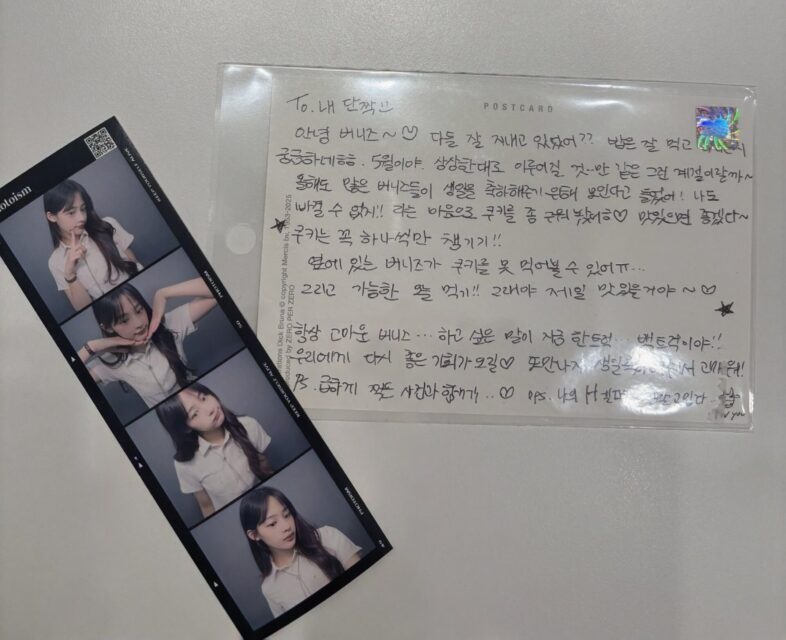 To. 내 단짝
POSTCARD
안녕 버니즈~♡ 다들 잘 지내고 있었어?? 밥은 잘 먹고
궁금하네ㅎㅎ. 5월이야. 상상한대로 이루어질 것..만 같은 그런 계절이랄까~
올해도 많은 버니즈들이 생일을 축하해주기 위해 모인다고 들었어! 나도
빠질 수 없지!! 라는 마음으로 쿠키를 좀 구워 봤어ㅎ♡ 맛있으면 좋겠다~
쿠키는 꼭 하나씩만 챙기기!!
옆에 있는 버니즈가 쿠키를 못 먹어볼 수 있어ㅠ...
그리고 가능한 오늘 먹기!! 그래야 제일 맛있을거야~♡
항상 고마운 버니즈... 하고 싶은 말이 지금 한트럭... 백트럭이야!!
우리에게 다시 좋은 기회가 오길♡ 또만나자 생일 고마워!
PS. 급하게 찍은 사진과 함께.. ♡ PPS. 나의 H
you
Dick Bruna © copyright Mercis bv, 1953-2025
by ZERO PER ZERO
photoism
KEEP YOURSELF ALIVE
PHOTOISM
KEEP YOURSELF ALIVE
PHOTOISM